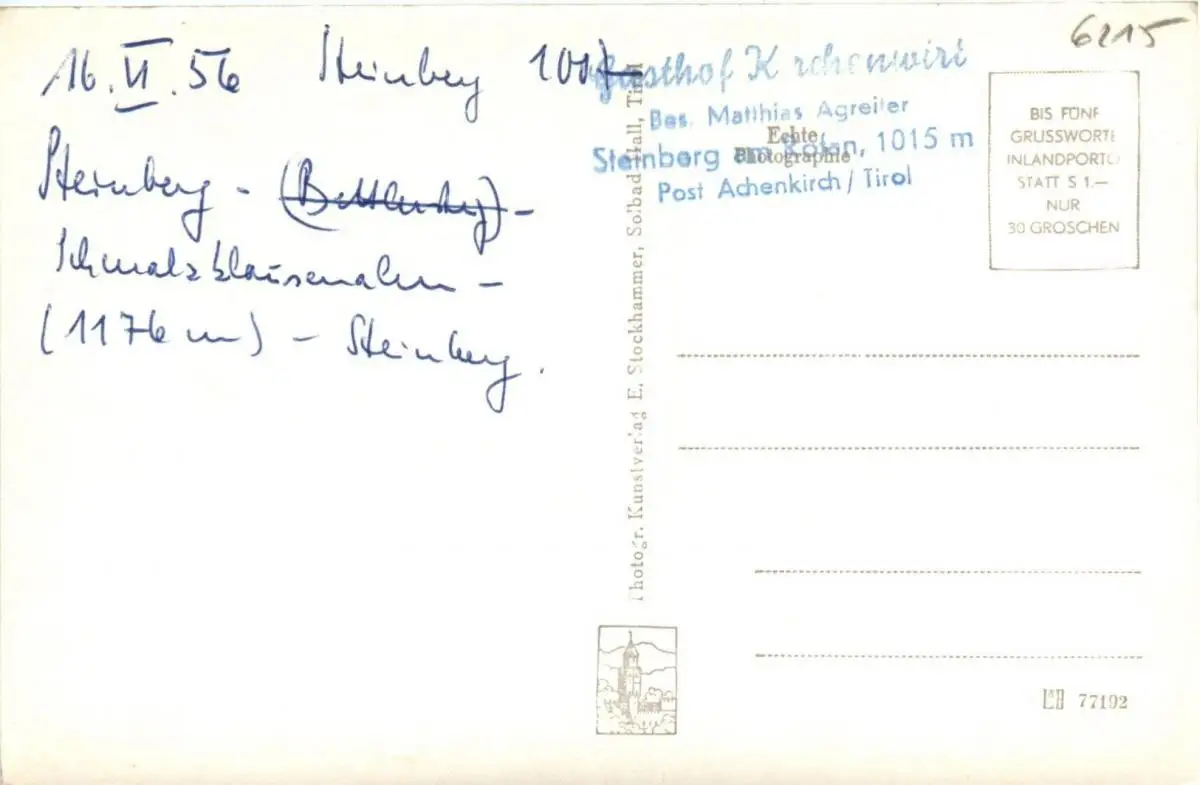 16.VI.56 Steinberg
Steinberg -
Schmalzklausenalm -
(1176 m) - Steinberg.
6215
Gasthof Kirchenwirt
Bes. Matthias Agreiter
Steinberg am Rofan, 1015 m
Post Achenkirch / Tirol
Echte
Photographie
BIS FÜNF
GRUSSWORTE
INLANDPORTO
STATT S 1.—
NUR
30 GROSCHEN
Photogr. Kunstverlag E. Stockhammer, Solbad Hall, Tirol
77192